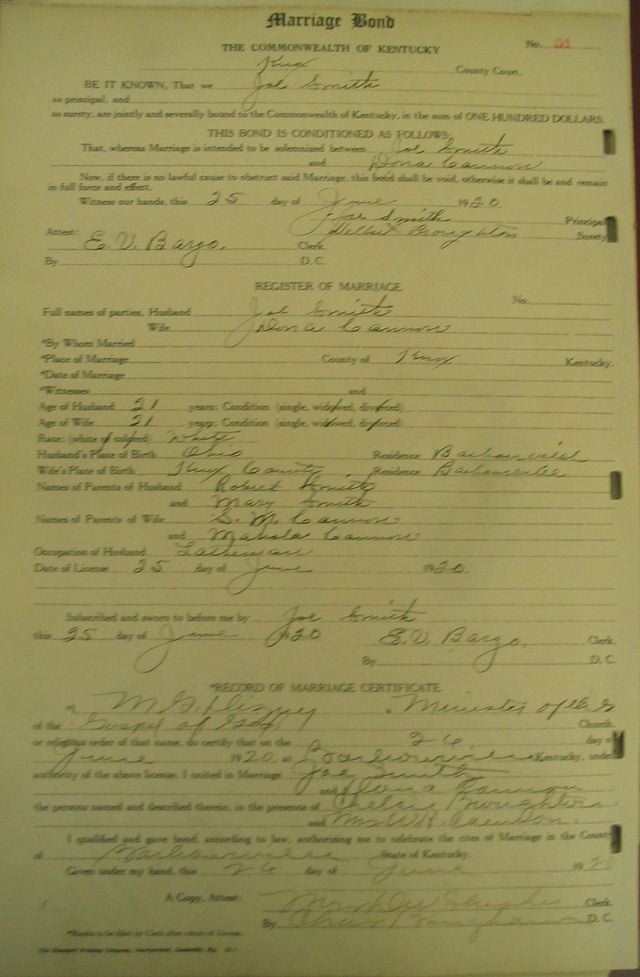 Marriage Bond
THE COMMONWEALTH OF KENTUCKY No. 91
Knox County Court.
BE IT KNOWN, That we Joe Smith
as principal, and
as surety, are jointly and severally bound to the Commonwealth of Kentucky, in the sum of ONE HUNDRED DOLLARS.
THIS BOND IS CONDITIONED AS FOLLOWS:
That, whereas Marriage is intended to be solemnized between Joe Smith
and Dona Cannon
Now, if there is no lawful cause to obstruct said Marriage, this bond shall be void, otherwise it shall be and remain
in full force and effect.
Witness our hands, this 25 day of June 1920
Joe Smith Principal
Attest: Delbert Broughton Surety
E. V. Bargo, Clerk
By D. C.
REGISTER OF MARRIAGE
No.
Full names of parties, Husband Joe Smith
Wife Dona Cannon
*By Whom Married
*Place of Marriage County of Knox Kentucky.
*Date of Marriage
*Witnesses and
Age of Husband 21 years; Condition (single, widowed, divorced)
Age of Wife 21 years; Condition (single, widowed, divorced)
Race: (white or colored) White
Husband's Place of Birth Ohio Residence Barbourville
Wife's Place of Birth Knox County Residence Barbourville
Names of Parents of Husband Robert Smith
and Mary Smith
Names of Parents of Wife S. M. Cannon
and Mahala Cannon
Occupation of Husband
Date of License 25 day of June 1920
Subscribed and sworn to before me by Joe Smith
this 25 day of June 1920 E. V. Bargo, Clerk
By D. C.
*RECORD OF MARRIAGE CERTIFICATE
I, M. G. Disney, Minister of the
of the Gospel of Church,
or religious order of that name, do certify that on the 26 day of
June 1920, at Barbourville Kentucky, under
authority of the above license, I united in Marriage Joe Smith
and Dona Cannon
the persons named and described therein, in the presence of Chelsie Broughton
and Mrs. W. H.
I qualified and gave bond, according to law, authorizing me to celebrate the rites of Marriage in the County
of Barbourville State of Kentucky.
Given under my hand, this 26 day of June 1920
A Copy, Attest: Clerk
By D. C.
*Blanks to be filled by Clerk after return of License.